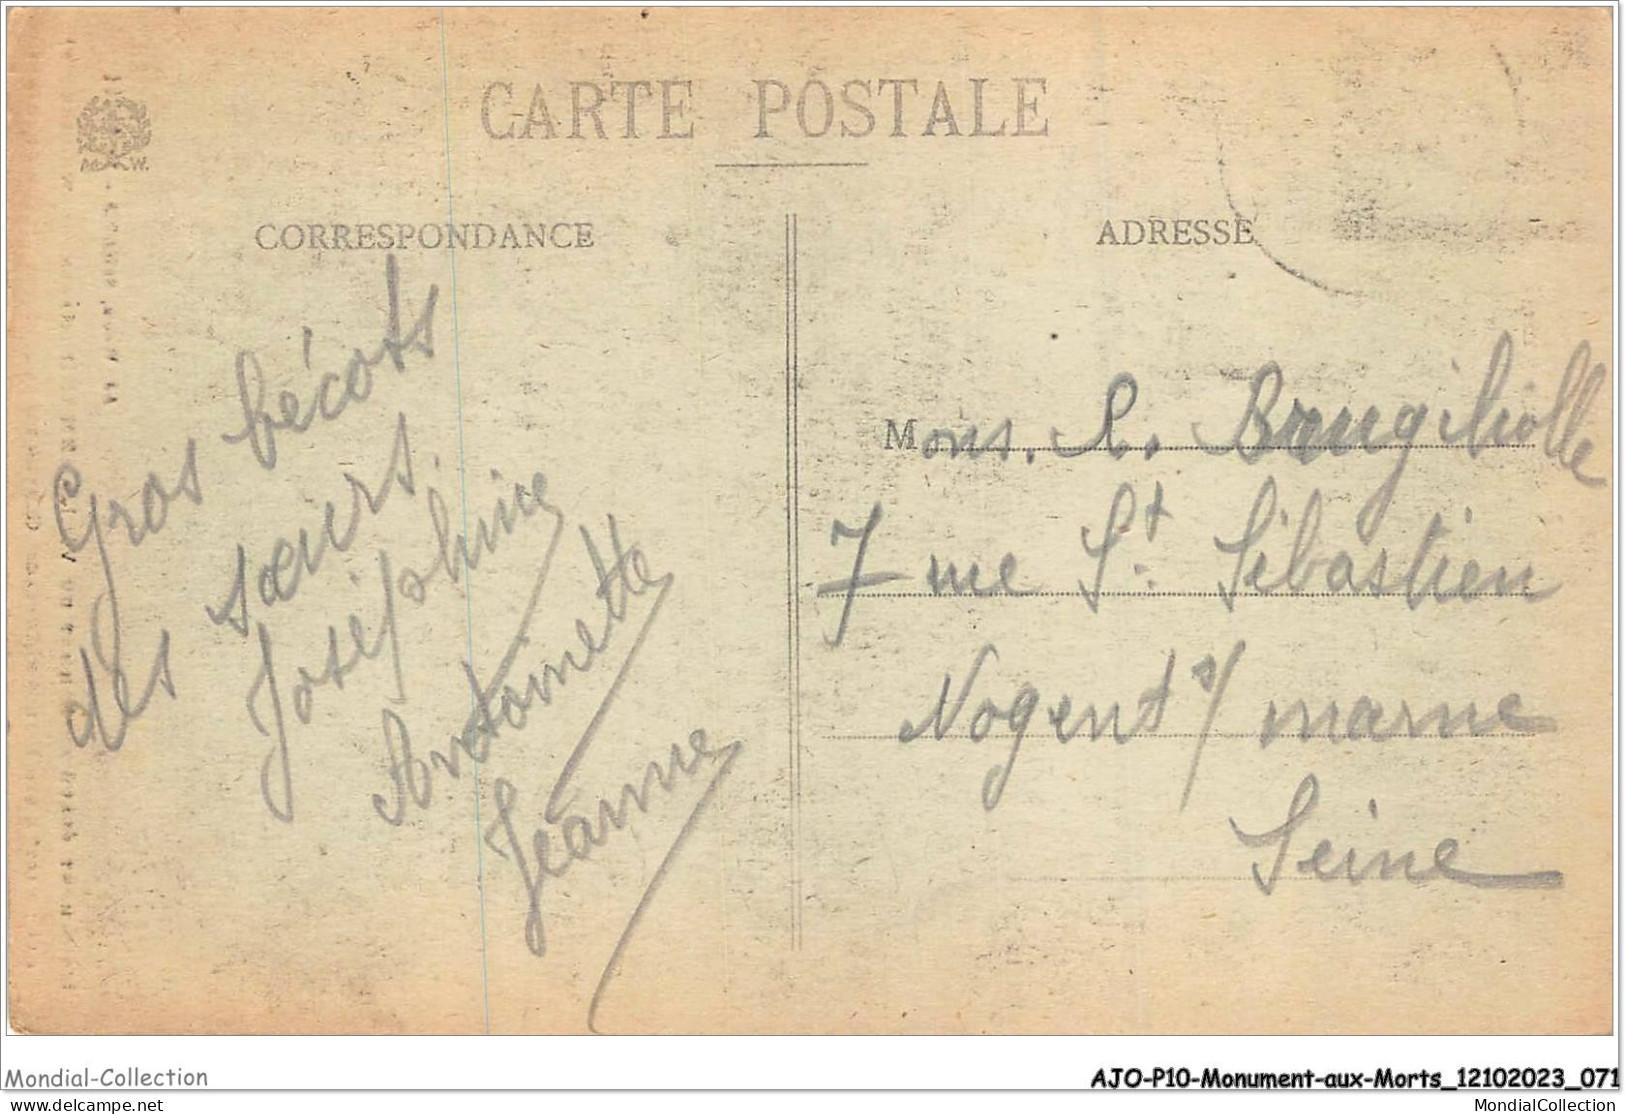 CARTE POSTALE
CORRESPONDANCE
ADRESSE
Gros bécots
des sœurs.
Joséphine
Antoinette
Jeanne
Mons. R. Brugiholle
7 rue St. Sébastien
Nogent s/ marne
Seine
Mondial-Collection
AJO-P10-Monument-aux-Morts_12102023_071
www.delcampe.net
MondialCollection